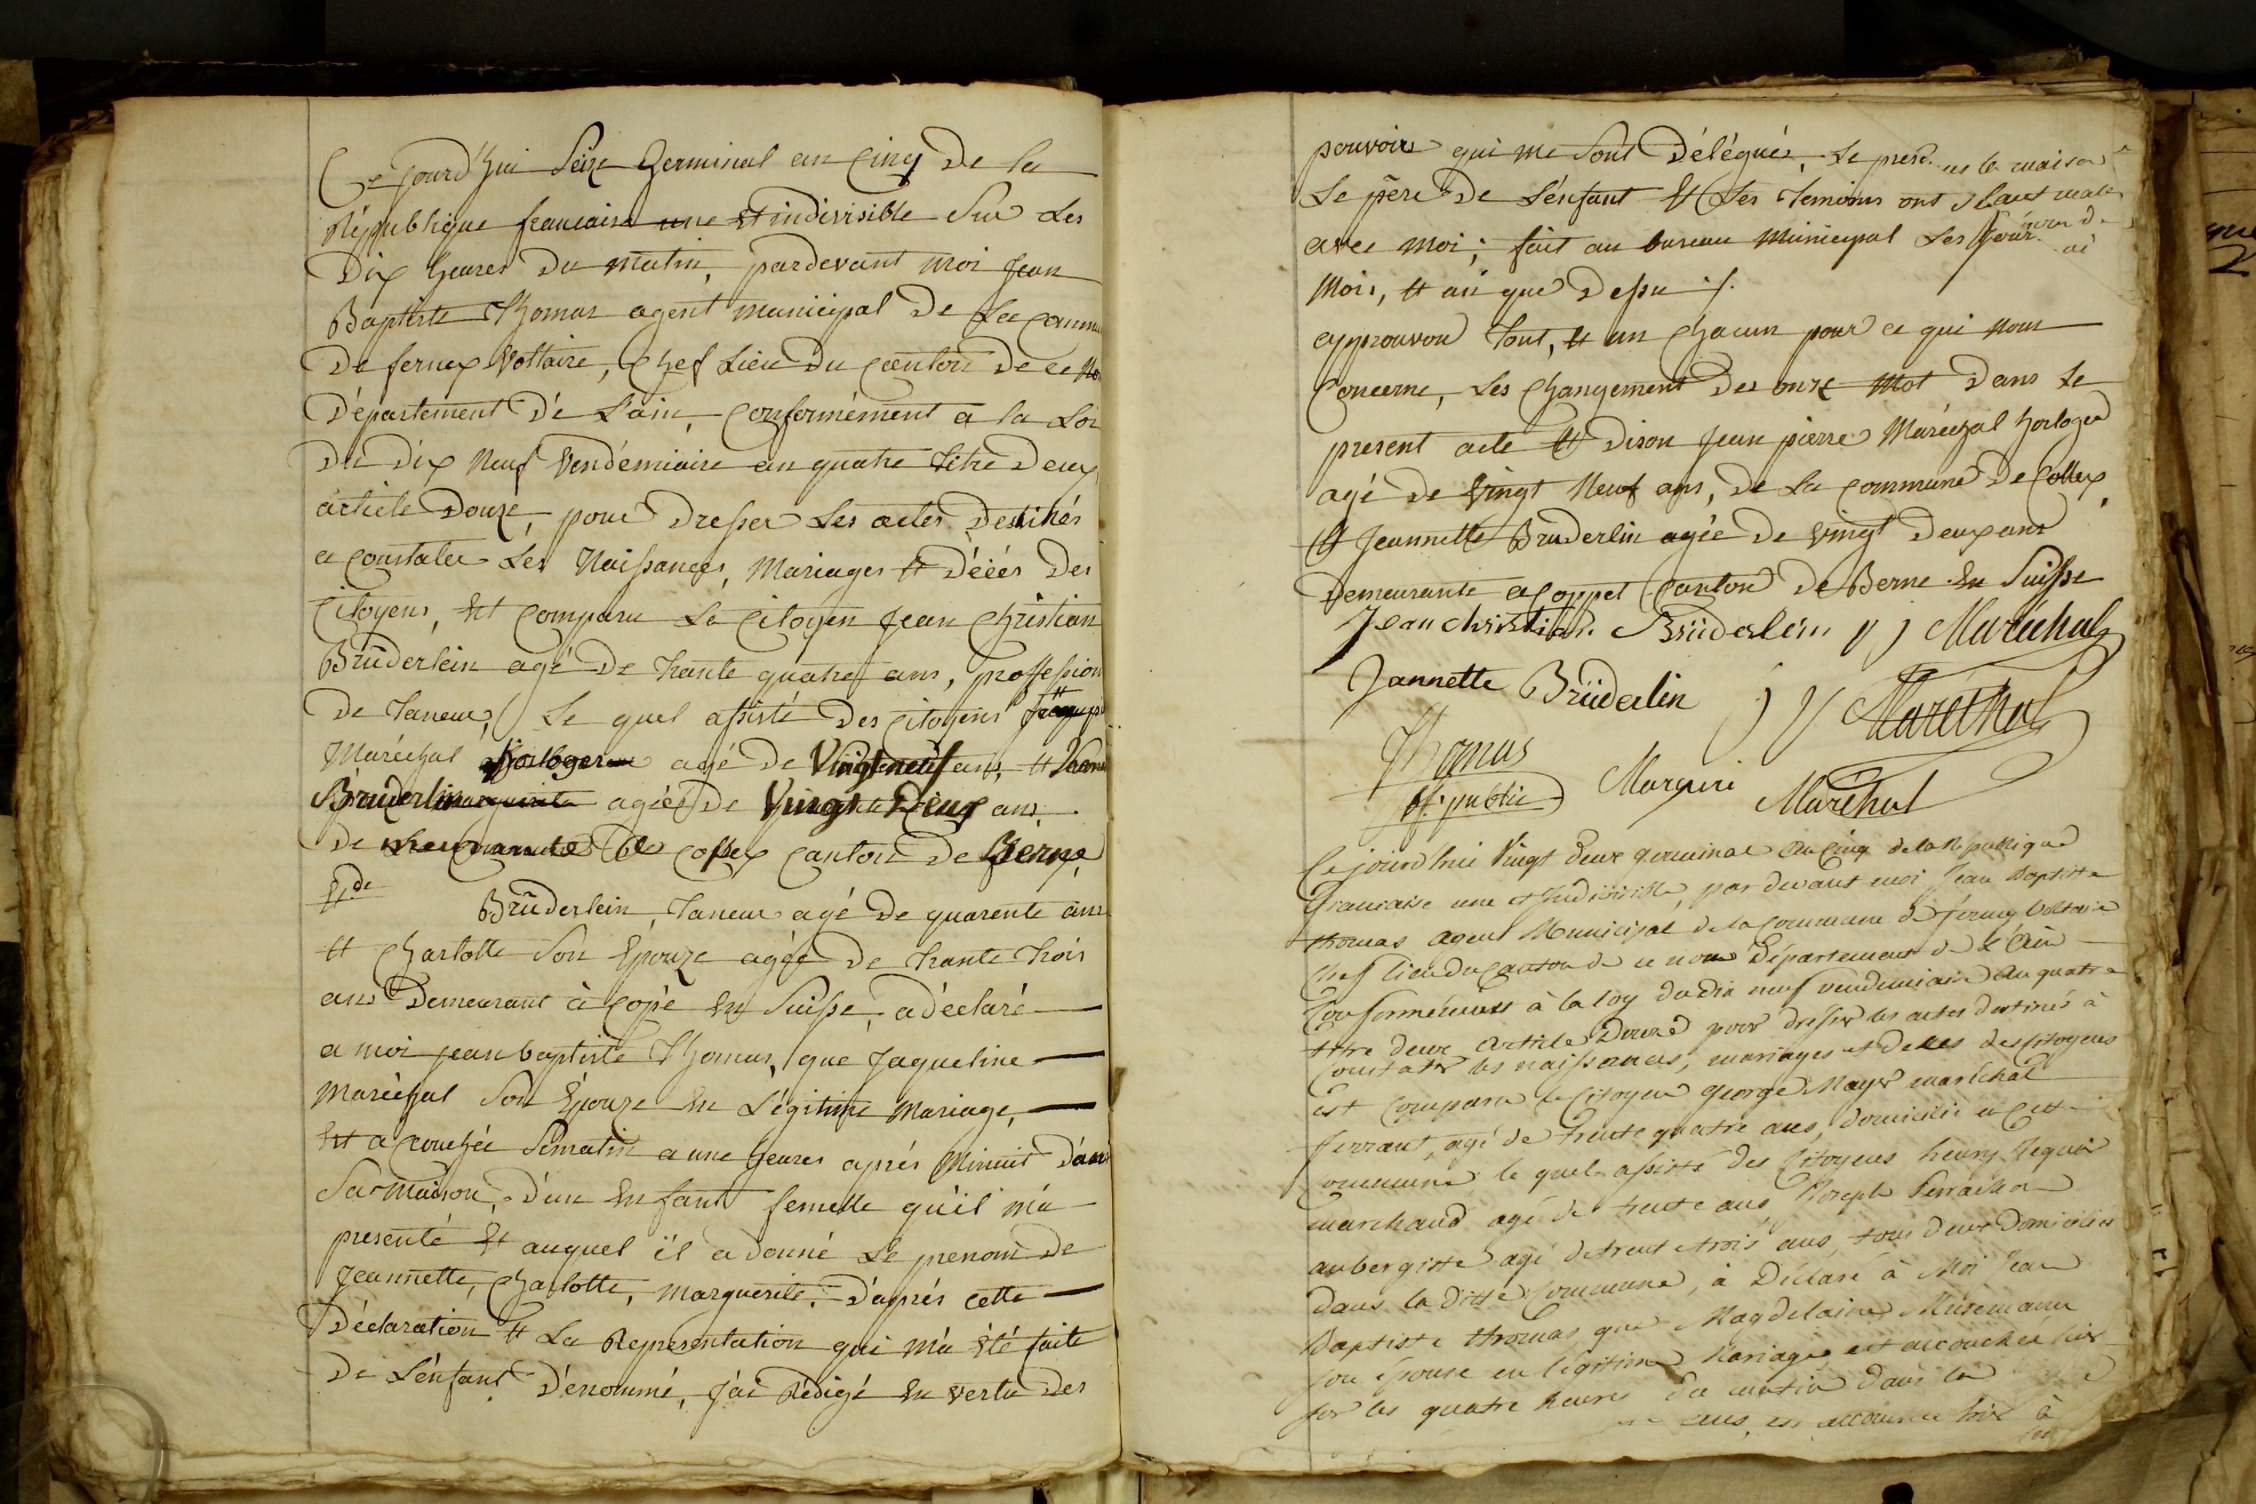 Ce jourd'hui Seize Germinal an Cinq De la
République francaise une et indivisible Sur Les
Dix heures Du matin, pardevant moi Jean
Baptiste Thomas agent municipal De La Commu
De ferney Voltaire, Chef Lieu Du Canton De ce No
Département De L'ain, Conformément a la Loi
Du Dix Neuf Vendémiaire an quatre titre Deux
article Douze, pour Dresser Les actes Destinés
a constater Les Naissances, Mariages et Décés Des
Citoyens, Est Comparu Le Citoyen Jean Christian
Brüderlein agé De trante quatre ans, proffession
De taneur, Le quel assisté Des Citoyens
Maréchal horloger agé de Vingt neuf ans, et
Brüderlin agées De Vingt Deux ans
De Canton De Berne
Et de
Brüderlein, taneur agé De quarente ans
et Charlotte Son Epouze agée De trante trois
ans Demeurant à Cope En Suisse, a déclaré
a moi jean baptiste Thomas, que Jaqueline
Maréchal Son Epouze En Légitime Mariage,
Est acouchée Sematin a une heures aprés Minuit Dans
Sa Maison, D'un Enfant femelle qu'il m'a
presenté Et auquel il a donné Le prenom De
Jeannette, Charlotte, Marguerite, D'aprés cette
Déclaration et La Representation qui m'a été faite
De L'enfant Dénommé, J'ai Rédigé En vertu Des
pouvoirs qui me Sont Délégués, Le
Le père De L'enfant Et Les temoins ont
avec Moi; fait au bureau Municipal Les Jour
Mois, et an que Dessu
approuvon tout, et un chacun pour ce qui nous
Concerne, Les Changement Des onze Mot Dans Le
present acte et Dison Jean pierre Maréchal horloger
agé De Vingt Neuf ans, De La Commune De Collex
et Jeannette Brüderlin agée De Vingt Deux ans
Demeurante a Coppet Canton De Berne En Suisse
Jean christian Brüderlein Maréchal
Jannette Brüderlin Maréchal
Thomas
of. public Maréchal
Ce jourd'hui Vingt Deux germinal an Cinq de la République
francaise une et Indivisible, par devant moi Jean Baptiste
thomas agent Municipal de la Commune de ferney Voltaire
Chef lieu du Canton de ce nom Département de l'Ain
Conformément à la loy du dix neuf vendemiaire an quatre
titre deux article Douze pour dresser les actes destinés à
Constater les naissances, mariages et décès des Citoyens
Est Comparu le Citoyen George Mayer maréchal
ferrant, agé de trente quatre ans, domicilié en Cette
Commune le quel assisté des Citoyens henry
marchand agé de trente ans Joseph
aubergiste agé de trente trois ans, tous deux Domiciliés
Dans la ditte Commune, à Déclaré à Moi Jean
Baptiste thomas que Magdelaine
son épouse en légitime Mariage est accouchée hier
sur les quatre heures du matin dans la